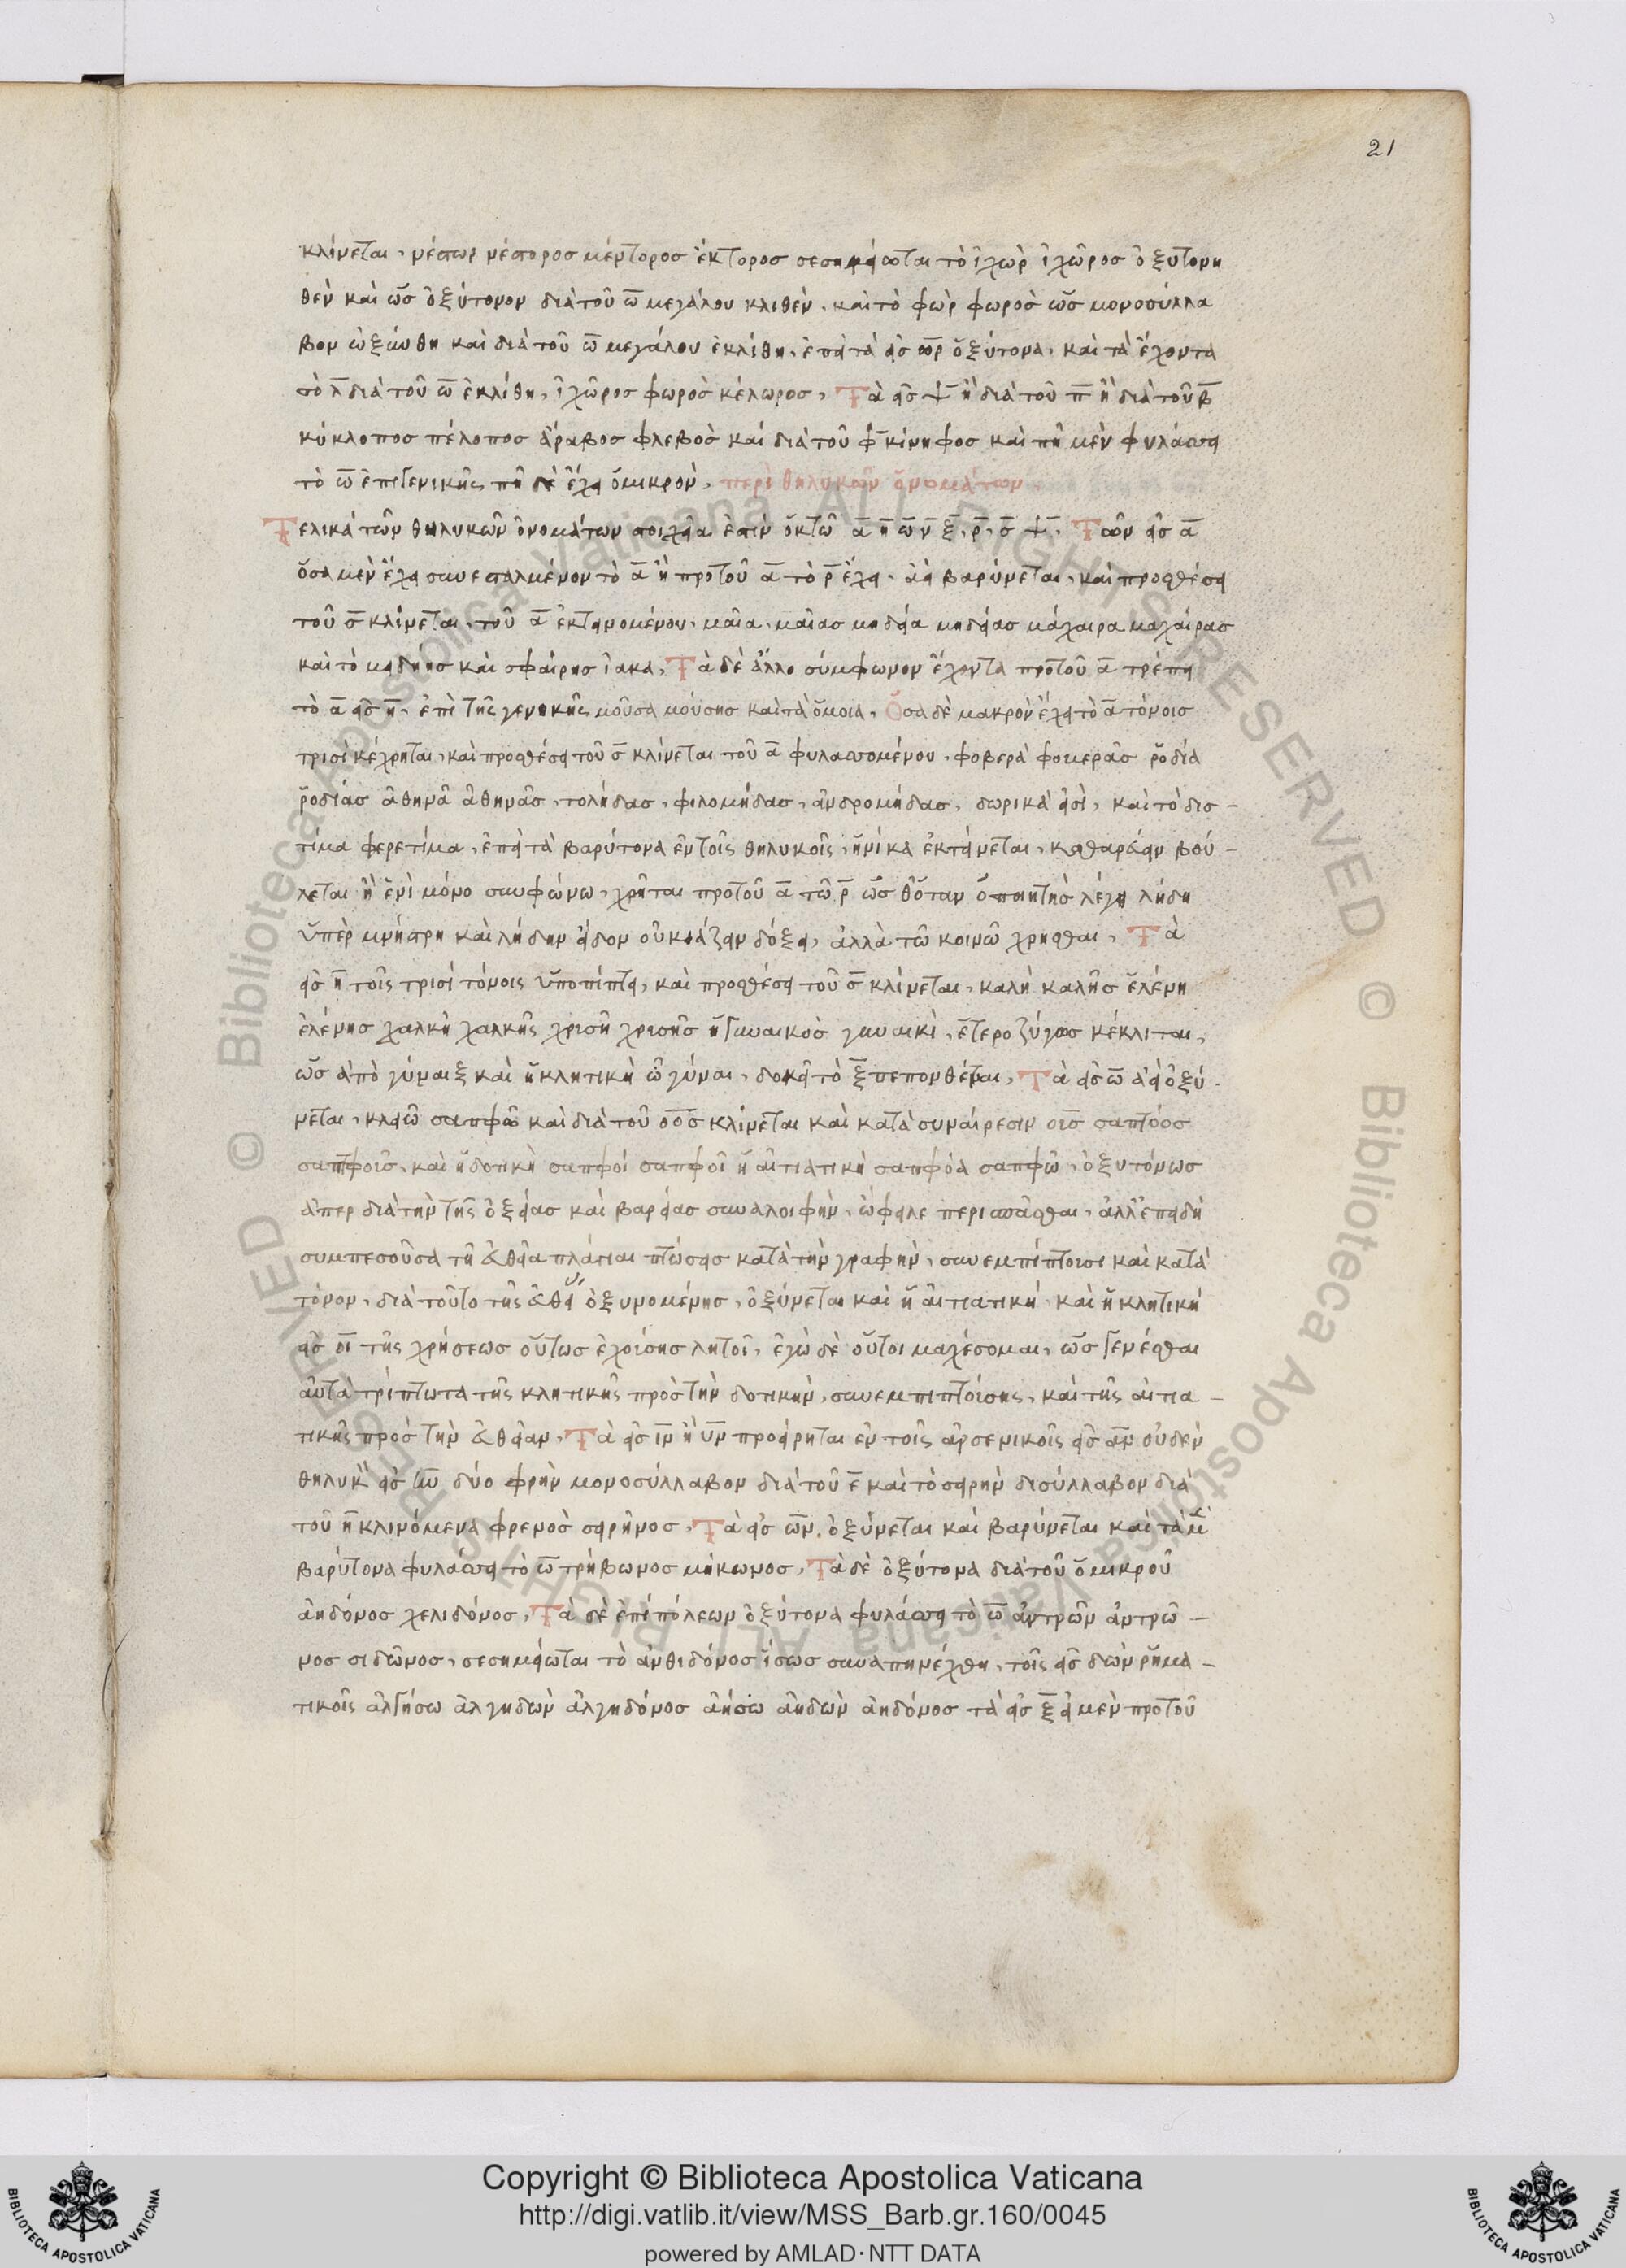 21
κλίνεται, νέστωρ νέστορος μέντορος ἕκτορος σεσημείωται τὸ ἰχὼρ ἰχῶρος ὀξυτονη
θὲν καὶ ὡς ὀξύτονον διὰ τοῦ ω̅ μεγάλου κλιθὲν, καὶ τὸ φὼρ φωρὸς ὡς μονοσύλλα
βον ὠξύνθη καὶ διὰ τοῦ ω̅ μεγάλου ἐκλίθη, ἐπεὶ τὰ εἰς ωρ̅ ὀξύτονα, καὶ τὰ ἔχοντα
τὸ λ̅ διὰ τοῦ ω̅ ἐκλίθη, ἰχῶρος φωρὸς κέλωρος, Τὰ εἰς ψ̅ ἢ διὰ τοῦ π̅ ἢ διὰ τοῦ β̅
κύκλοπος πέλοπος ἄραβος φλεβὸς καὶ διὰ τοῦ φ̅ κίνηφος καὶ πῆ μὲν φυλάσσει
τὸ ω̅ ἐπι γενικῆς πῆ δὲ ἔχει ὄμικρον, περὶ θηλυκῶν ὀνομάτων
Τελικὰ τῶν θηλυκῶν ὀνομάτων στοιχεῖα ἐστὶν ὀκτῶ α̅ η̅ ω̅ ν̅ ξ̅, ρ̅, σ̅ ψ̅, Τῶν εἰς α̅
ὅσα μὲν ἔχει συνεσταλμένον τὸ α̅ ἢ προ τοῦ α̅ τὸ ρ̅ ἔχει, ἀεὶ βαρύνεται, καὶ προσθέσει
τοῦ σ̅ κλίνεται, τοῦ α̅ ἐκτεινομένου, μαῖα, μαῖας μηδεία μηδείας μάχαιρα μαχαίρας
καὶ τὸ μηδείης καὶ σφαίρης ἰακα, Τὰ δὲ ἄλλο σύμφωνον ἔχοντα προ τοῦ α̅ τρέπει
τὸ α̅ εἰς η̅, ἐπὶ τῆς γενικῆς μοῦσα μούσης καὶ τὰ ὅμοια, Ὅσα δὲ μακρὸν ἔχει τὸ α̅ τόνοις
τρισὶ κέχρηται, καὶ προσθέσει τοῦ σ̅ κλίνεται τοῦ α̅ φυλασσομένου, φοβερὰ φουερᾶς ῥοδία
ῥοδίας ἀθηνᾶ ἀθηνᾶς, τολήδας, φιλομήδας, ἀνδρομήδας, δωρικὰ εἰσὶ, καὶ τὸ δις -
τίμα φερετίμα, ἐπεὶ τὰ βαρύτονα ἐν τοῖς θηλυκοῖς, ἡνίκα ἐκτείνεται, καθαρεύειν βού -
λεται ἢ ἑνὶ μόνο συμφώνω, χρῆται προ τοῦ α̅ τῶ ρ̅ ὡς θ ὅταν ὁ ποιητὴς λέγη λήδη
ὑπὲρ μνήστρη καὶ λήδην εἶδον οὐκ ἰάζειν δόξει, ἀλλὰ τῶ κοινῶ χρῆσθαι, Τὰ
εἰς η̅ τοῖς τρισὶ τόνοις ὑποπίπτει, καὶ προσθέσει τοῦ σ̅ κλίνεται, καλὴ καλῆς ἑλένη
ἑλένης χαλκὴ χαλκῆς χρισῆ χρισῆς ἡ γυναικὸς γυναικὶ, ἑτεροζύγως κέκλιται,
ὡς ἀπὸ γύναιξ καὶ ἡ κλητικὴ ὦ γύναι, δοκεῖ τὸ ξ̅ πεπονθέναι, Τὰ εἰς ω̅ ἀεὶ ὀξύ -
νεται, κλειῶ σαπφῶ καὶ διὰ τοῦ οος̅ κλίνεται καὶ κατὰ συναίρεσιν οις̅ σαπτόος
σαπφοις, καὶ ἡ δοτικὴ σαπφόι σαπφοῖ ἡ αἰτιατικὴ σαπφόα σαπφῶ, ὀξυτόνως
ἅπερ διὰ τὴν τῆς ὀξείας καὶ βαρείας συναλοιφὴν, ὤφειλε περισπᾶσθαι, ἀλλ' ἐπειδὴ
συμπεσοῦσα τῆ εὐθεῖα πλάγιαι πτώσεις κατὰ τὴν γραφὴν, συνεμπίπτοισι καὶ κατὰ
τόνον, διὰ τοῦτο τῆς εὐθεί ὀξυνομένης, ὀξύνεται καὶ ἡ αἰτιατική, καὶ ἡ κλητικὴ
εἰς οι̅ τῆς χρήσεως οὕτως ἐχοίσης λητοῖ, ἐγὼ δὲ οὔτοι μαχέσομαι, ὡς γενέσθαι
αὐτὰ τρίπτωτα τῆς κλητικῆς πρὸς τὴν δοτικὴν, συνεμπιπτοίσης, καὶ τῆς αἰτια -
τικῆς πρὸς τὴν εὐθεῖαν, Τὰ εἰς ιν̅ ἢ υν̅ προείρηται ἐν τοῖς ἀρσενικοῖς εἰς αν̅ οὐδὲν
θηλυκ εἰς ην̅ δύο φρὴν μονοσύλλαβον διὰ τοῦ ε̅ καὶ τὸ σειρὴν δισύλλαβον διὰ
τοῦ η̅ κλινόμενα φρενὸς σειρῆνος, Τὰ εἰς ων̅, ὀξύνεται καὶ βαρύνεται καὶ τὰ μ
βαρύτονα φυλάσσει τὸ ω̅ τρήβωνος μήκωνος, Τὰ δὲ ὀξύτονα διὰ τοῦ ὀμικροῦ
ἀηδόνος χελιδόνος, Τὰ δὲ ἐπὶ πόλεων ὀξύτονα φυλάσσει τὸ ω̅ ἀντρῶν ἀντρῶ -
νος σιδῶνος, σεσημείωται τὸ ἀνθιδόνος ἴσως συναπηνέχθη, τοῖς εἰς δων ῥημα -
τικοῖς ἀλγήσω ἀλγηδὼν ἀλγηδόνος ἀήσω ἀηδὼν ἀηδόνος τὰ εἰς ξ̅ εἰ μὲν προ τοῦ
Copyright © Biblioteca Apostolica Vaticana
http://digi.vatlib.it/view/MSS_Barb.gr.160/0045
powered by AMLAD·NTT DATA